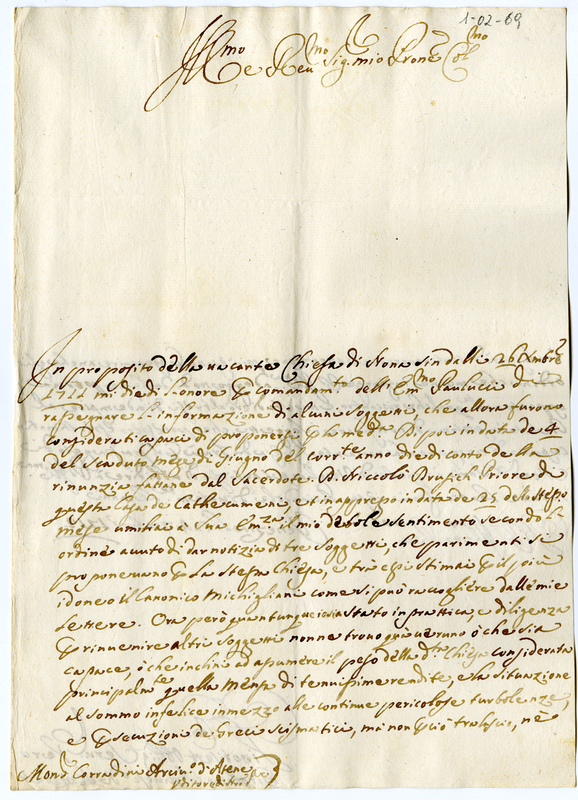 1-02-69
Ill.mo e Reu.mo Sig.mio Prone Col.mo
In proposito della uacante Chiesa di Nona sin dalli 26 Xmbre
1711 mi diedi l'onore p comandam.to dell'Em.mo Paulucci di
rassegnare l'informazione di alcuni Soggetti, che allora furono
considerati capaci di proporersi p la med.a Dipoi in data de 4
del scaduto mese di Giugno del corr.te anno diedi conto della
rinunzia fattane dal Sacerdote D. Niccolò Brusich Priore di
questa Casa de Cathecumeni, et in appresso in data de 25 dello stesso
mese umiliai a Sua Em.za il mio debole sentimento secondo l'
ordine auuto di dar notizia di tre Soggetti, che parimenti si
proponeuano p la stessa Chiesa, e trà essi stimai p il più
idoneo il Canonico Michigliani come si può raccogliere dalle mie
lettere. Ora però quantunque io sia stato in prattica, e diligenza
p rinuenire altri Soggetti non ne trouo quà ueruno ò che sia
capace, ò che inclini ad assumere il peso della d.a Chiesa considerata
principalm.te quella Mensa di tenuissime rendite, e la situazione
al sommo infelice in mezzo alle continue pericolose turbolenze,
e p secuzioni de Greci Scismatici, mà non p ciò tralascio, nè
Mons.r Corradini Arciu.o d'Atene
Uditore di N.